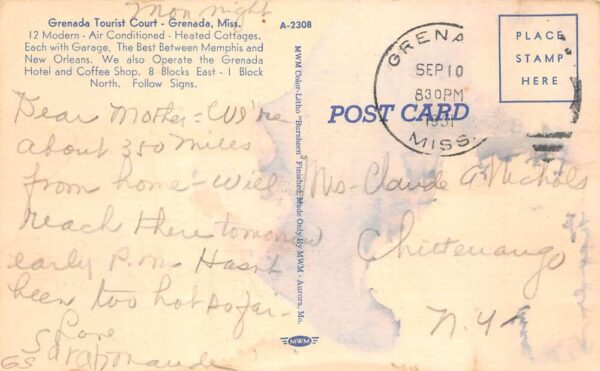 Mon night
Grenada Tourist Court - Grenada, Miss.
12 Modern - Air Conditioned - Heated Cottages.
Each with Garage, The Best Between Memphis and
New Orleans. We also Operate the Grenada
Hotel and Coffee Shop. 8 Blocks East - 1 Block
North. Follow Signs.
Dear Mother = We're
about 350 miles
from home - will
reach there tomorrow
early P.M. Hasn't
been too hot so far -
Love
Sarah
GS
A-2308
MWM Color-Litho "Bursheen" Finished. Made Only By MWM - Aurora, Mo.
MWM
POST CARD
GRENA
SEP 10
830PM
1951
MISS.
PLACE
STAMP
HERE
Mrs - Claude A Nichols
Chittenango
N.Y -